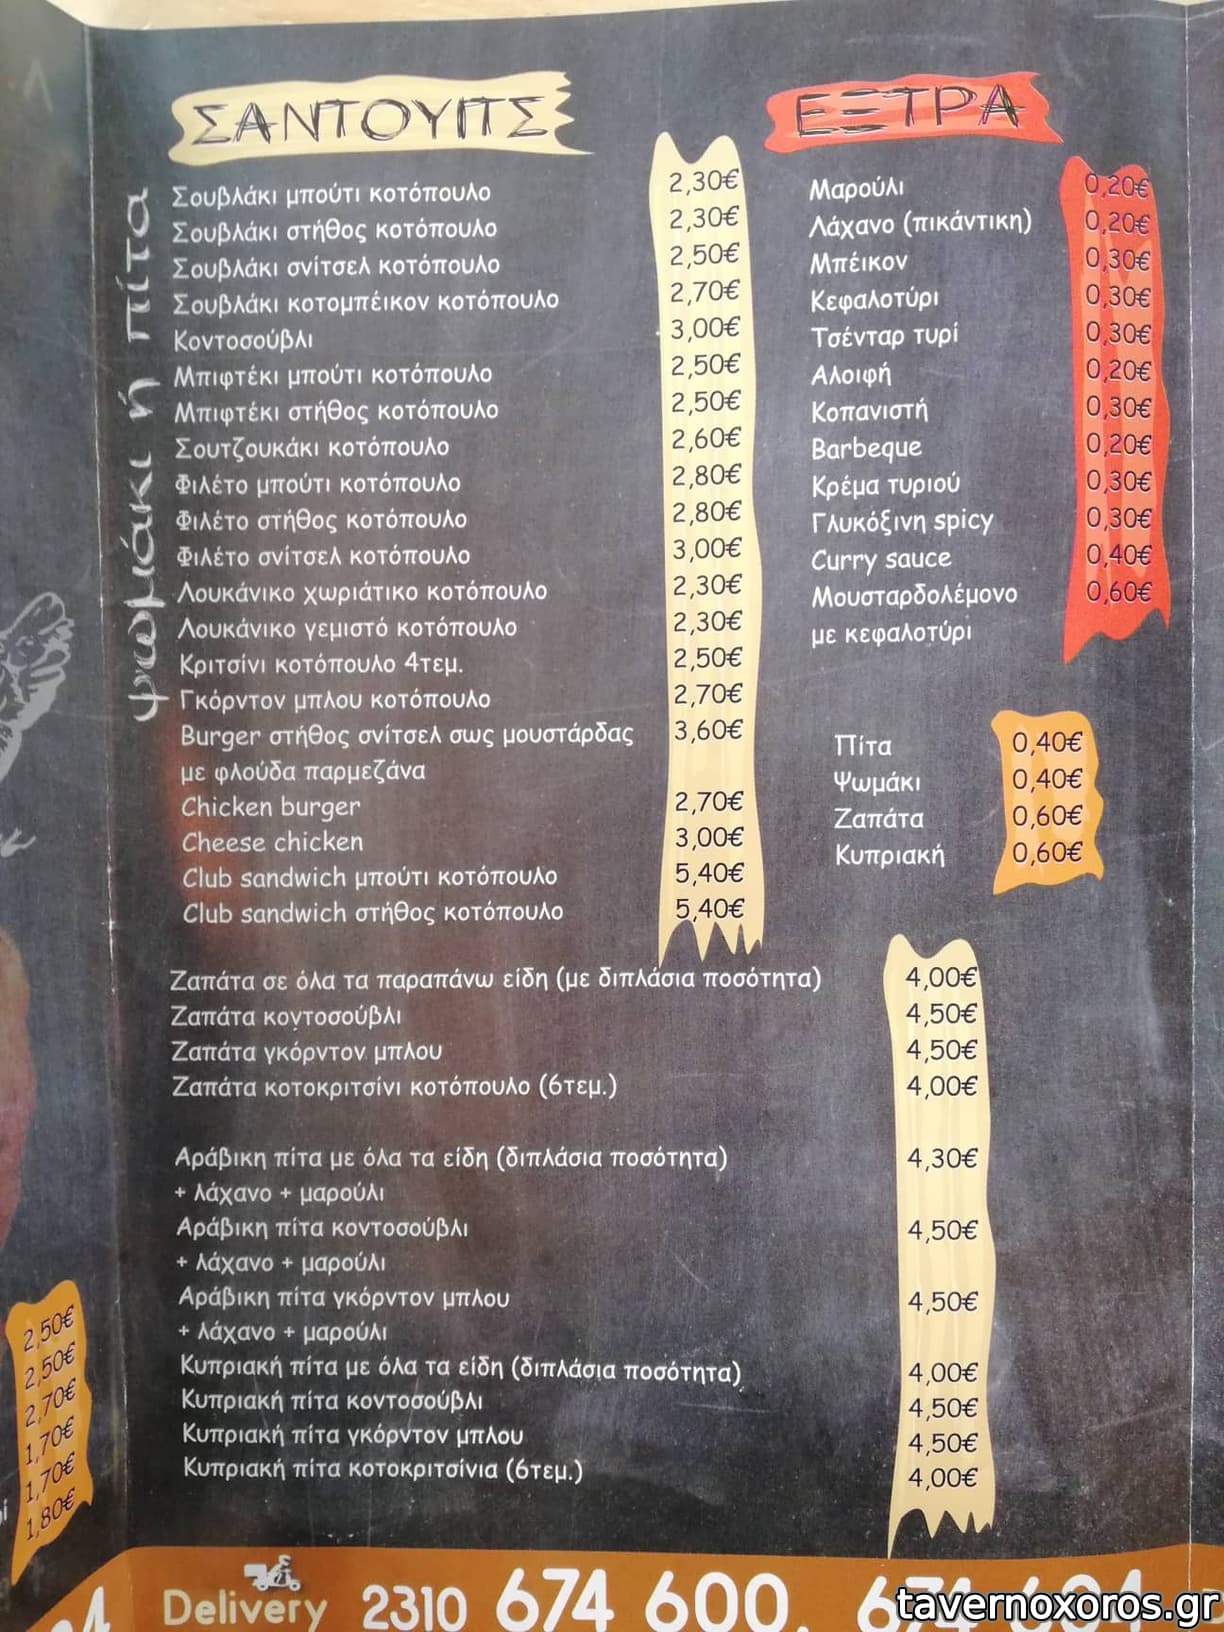 ΣΑΝΤΟΥΙΤΣ
ψωμάκι ή πίτα
Σουβλάκι μπούτι κοτόπουλο 2,30€
Σουβλάκι στήθος κοτόπουλο 2,30€
Σουβλάκι σνίτσελ κοτόπουλο 2,50€
Σουβλάκι κοτομπέικον κοτόπουλο 2,70€
Κοντοσούβλι 3,00€
Μπιφτέκι μπούτι κοτόπουλο 2,50€
Μπιφτέκι στήθος κοτόπουλο 2,50€
Σουτζουκάκι κοτόπουλο 2,60€
Φιλέτο μπούτι κοτόπουλο 2,80€
Φιλέτο στήθος κοτόπουλο 2,80€
Φιλέτο σνίτσελ κοτόπουλο 3,00€
Λουκάνικο χωριάτικο κοτόπουλο 2,30€
Λουκάνικο γεμιστό κοτόπουλο 2,30€
Κριτσίνι κοτόπουλο 4τεμ. 2,50€
Γκόρντον μπλου κοτόπουλο 2,70€
Burger στήθος σνίτσελ σως μουστάρδας 3,60€
με φλούδα παρμεζάνα
Chicken burger 2,70€
Cheese chicken 3,00€
Club sandwich μπούτι κοτόπουλο 5,40€
Club sandwich στήθος κοτόπουλο 5,40€
ΕΞΤΡΑ
Μαρούλι 0,20€
Λάχανο (πικάντικη) 0,20€
Μπέικον 0,30€
Κεφαλοτύρι 0,30€
Τσένταρ τυρί 0,30€
Αλοιφή 0,20€
Κοπανιστή 0,30€
Barbeque 0,20€
Κρέμα τυριού 0,30€
Γλυκόξινη spicy 0,30€
Curry sauce 0,40€
Μουσταρδολέμονο 0,60€
με κεφαλοτύρι
Πίτα 0,40€
Ψωμάκι 0,40€
Ζαπάτα 0,60€
Κυπριακή 0,60€
Ζαπάτα σε όλα τα παραπάνω είδη (με διπλάσια ποσότητα) 4,00€
Ζαπάτα κοντοσούβλι 4,50€
Ζαπάτα γκόρντον μπλου 4,50€
Ζαπάτα κοτοκριτσίνι κοτόπουλο (6τεμ.) 4,00€
Αράβικη πίτα με όλα τα είδη (διπλάσια ποσότητα) 4,30€
+ λάχανο + μαρούλι
Αράβικη πίτα κοντοσούβλι 4,50€
+ λάχανο + μαρούλι
Αράβικη πίτα γκόρντον μπλου 4,50€
+ λάχανο + μαρούλι
Κυπριακή πίτα με όλα τα είδη (διπλάσια ποσότητα) 4,00€
Κυπριακή πίτα κοντοσούβλι 4,50€
Κυπριακή πίτα γκόρντον μπλου 4,50€
Κυπριακή πίτα κοτοκριτσίνια (6τεμ.) 4,00€
2,50€
2,50€
2,70€
1,70€
1,70€
1,80€
Delivery 2310 674 600,
tavernoxoros.gr